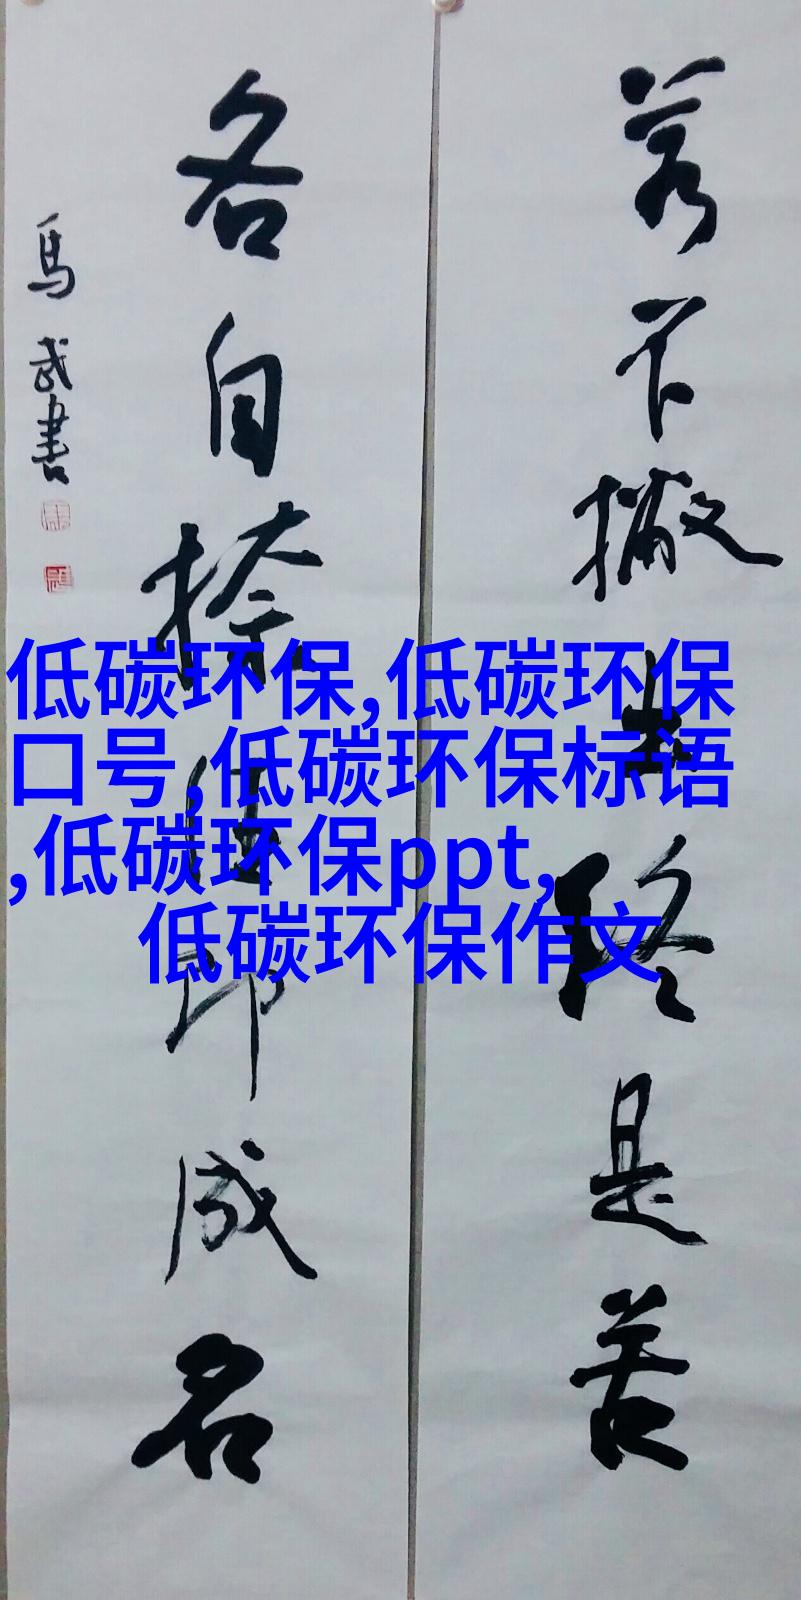 若不撇出终是苦
各自捺住即成名
馬武書
低碳环保,低碳环保
口号,低碳环保标语
,低碳环保ppt,
低碳环保作文